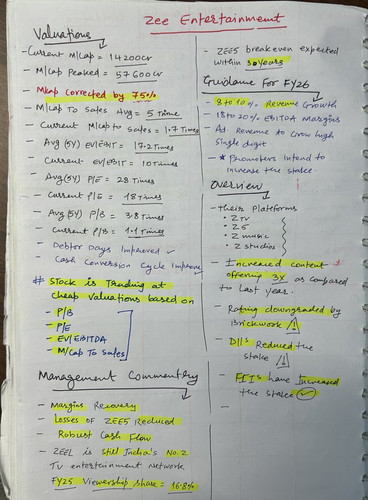 Zee Entertainment
Valuations
- Current M/Cap = 14200cr
- M/Cap Peaked = 57600cr
- Mkap corrected by 75%
- M/Cap To Sales Avg = 5 Time
- Current M/cap to Sales = 1.7 Times
- Avg (5Y) EV/EBIT = 17.2 Times
- Current EV/EBIT = 10 Times
- Avg (5Y) P/E = 28 Times
- Current P/E = 18 Times
- Avg (5Y) P/B = 3.8 Times
- Current P/B = 1.1 Times
- Debtor Days Improved
- Cash Conversion Cycle Improve
# Stock is Trading at
cheap valuations based on
- P/B
- P/E
- EV/EBITDA
- M/Cap To Sales
Management Commentry
- Margins Recovery
- Losses of ZEE5 Reduced
- Robust Cash Flow
- ZEEL is still India's No.2
TV entertainment Network
FY25 Viewership share = 16.8%
- ZEE5 break even expected
within years
Guidance For FY26
- 8 to 10% Revenue Growth
- 18 to 20% EBITDA Margins
- Ad Revenue to Grow high
single digit
- * Promoters Intend to
increase the stake
Overview
- Their Plateforms
• Z TV
• Z5
• Z music
• Z studios
- Increased content
offering 3X as compared
to last year.
- Rating downgraded by
Brickwork
- DIIs Reduced the
stake
- FIIs have Increased
the stake
-